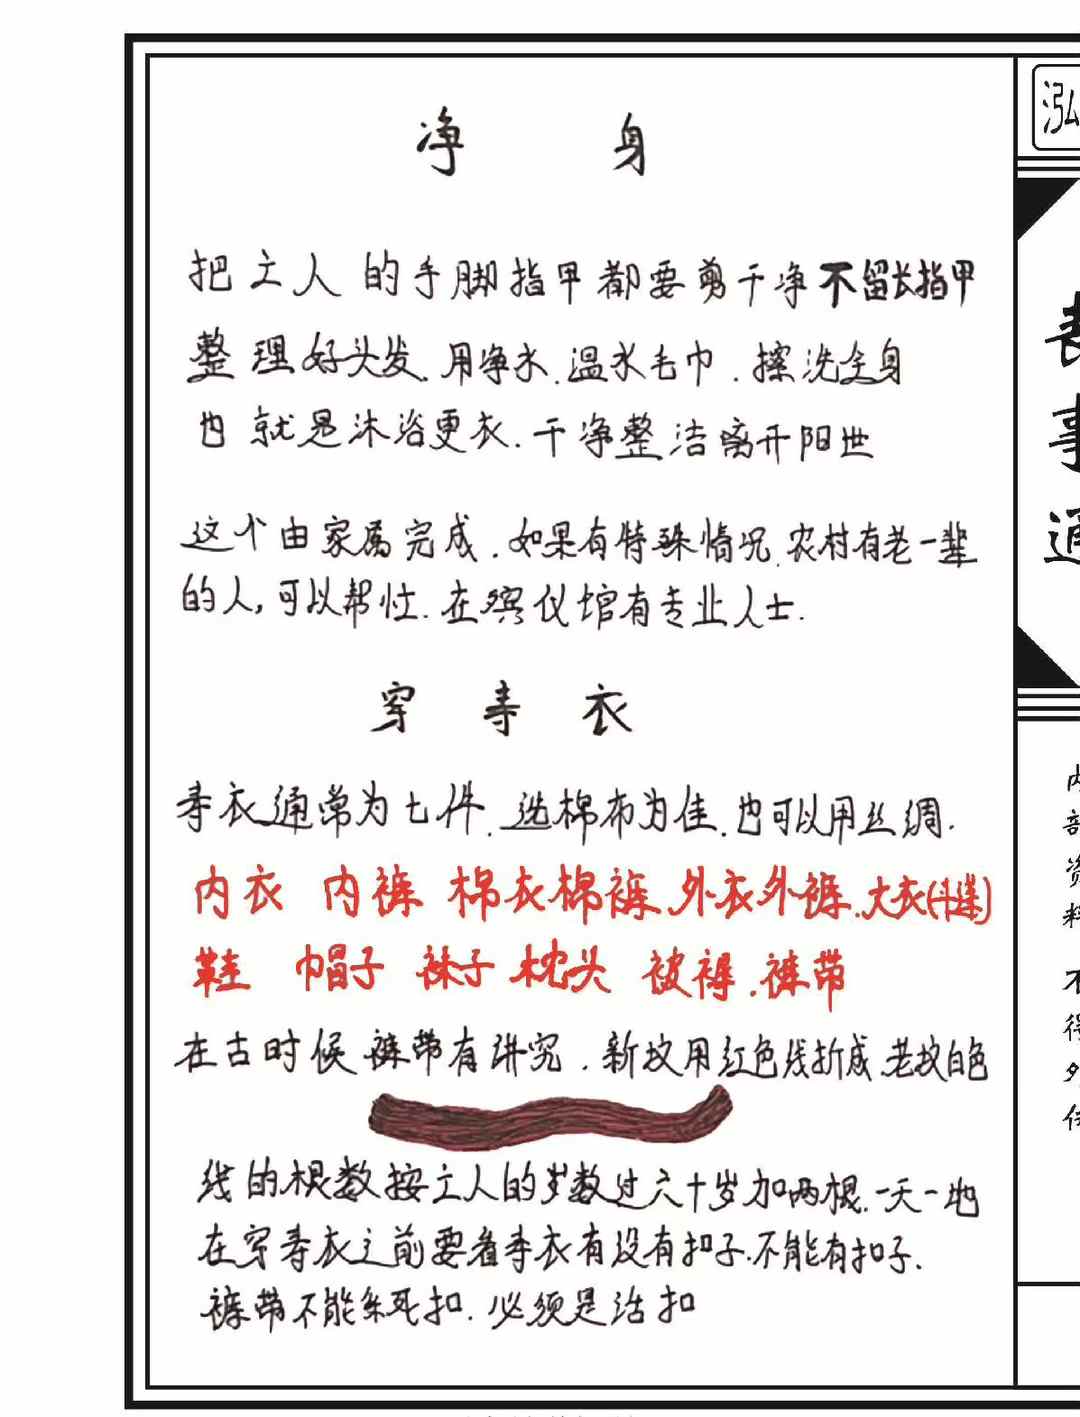 净 身
把亡人的手脚指甲都要剪干净不留长指甲
整理好头发.用净水.温水毛巾.擦洗全身
也就是沐浴更衣.干净整洁离开阳世
这个由家属完成.如果有特殊情况.农村有老一辈
的人,可以帮忙.在殡仪馆有专业人士.
穿 寿 衣
寿衣通常为七件.选棉布为佳.也可以用丝绸.
内衣 内裤 棉衣棉裤.外衣外裤.大衣(斗篷)
鞋 帽子 袜子 枕头 被褥.裤带
在古时候裤带有讲究.新坟用红色线折成.老坟白色
线的根数按亡人的岁数过六十岁加两根.一天一地
在穿寿衣之前要看寿衣有没有扣子.不能有扣子.
裤带不能系死扣.必须是活扣
泓
丧事通
内部资料
不得外传